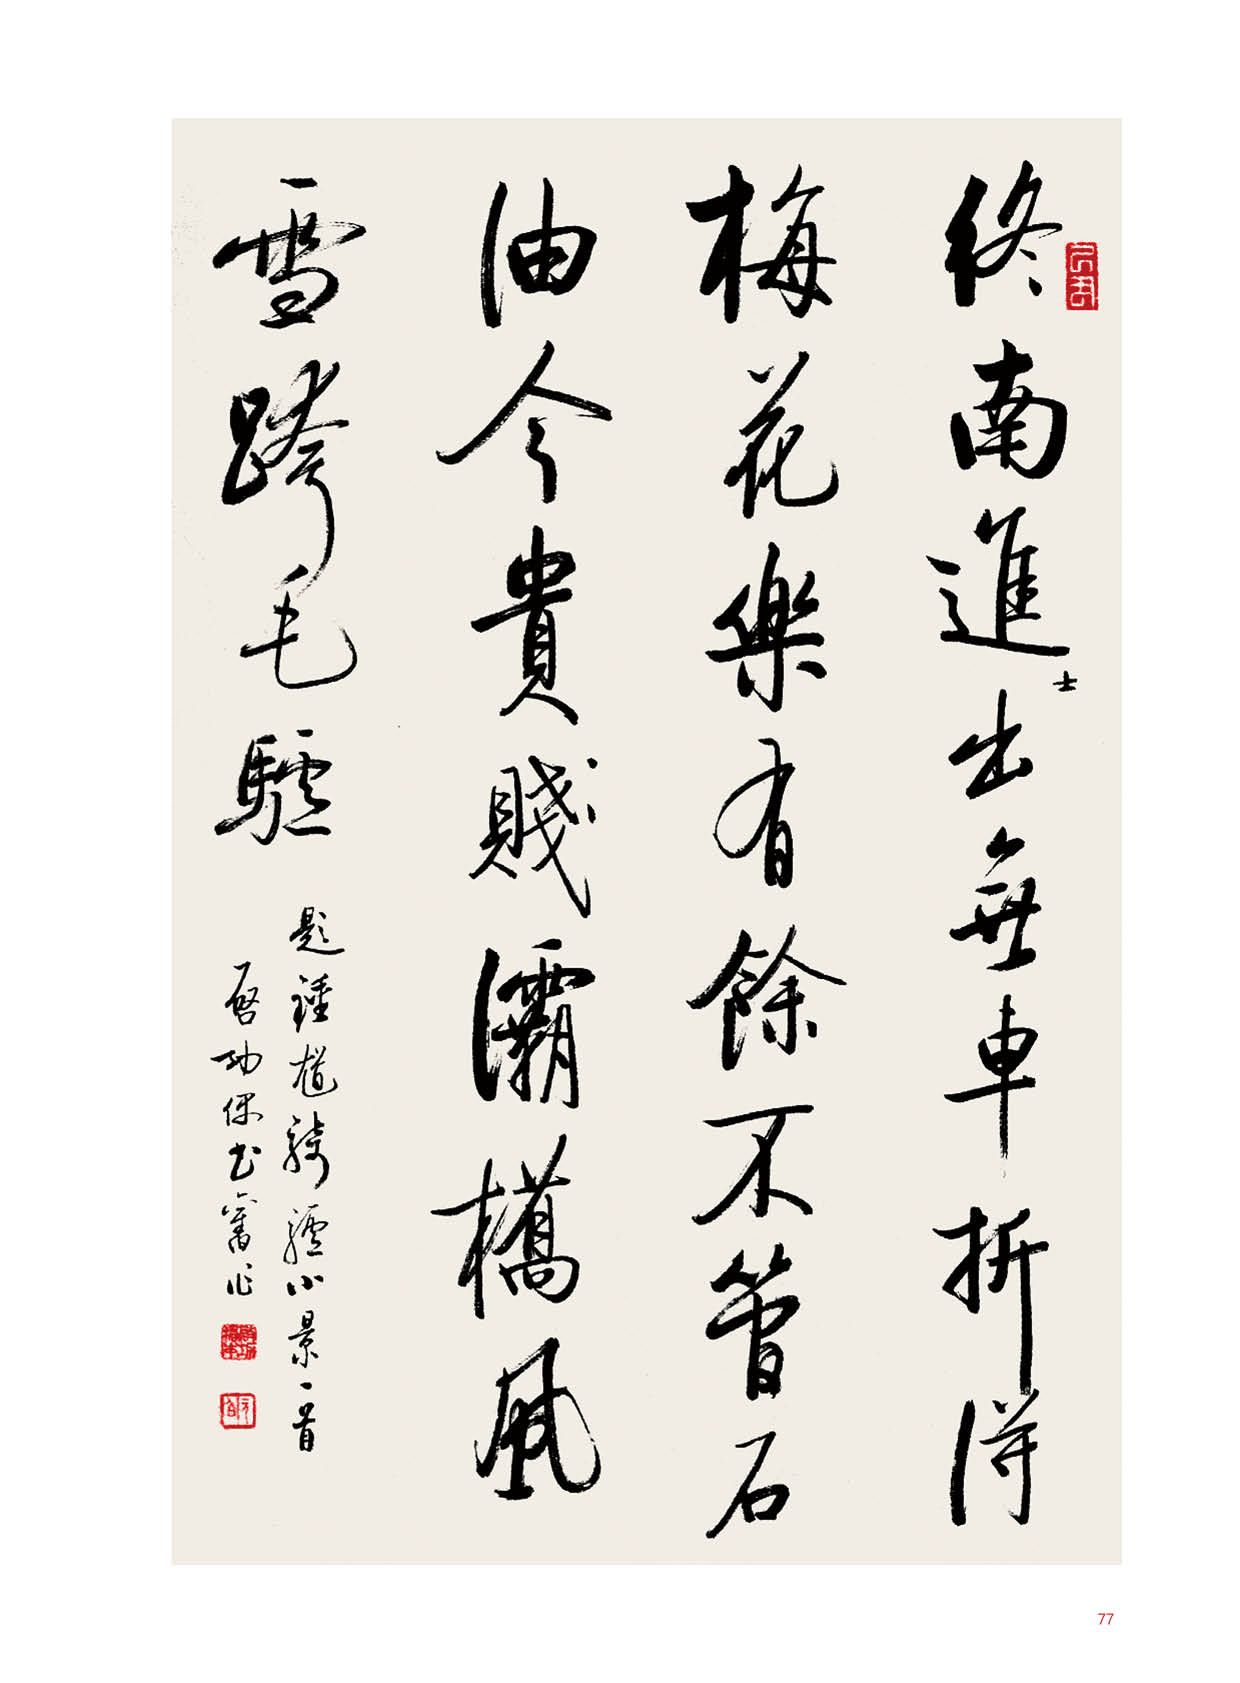 終南進士出無車折得
梅花樂有餘不管石
油今貴賤灞橋風
雪跨毛驢
題鍾馗騎驢小景一首
啟功偶書舊作
77